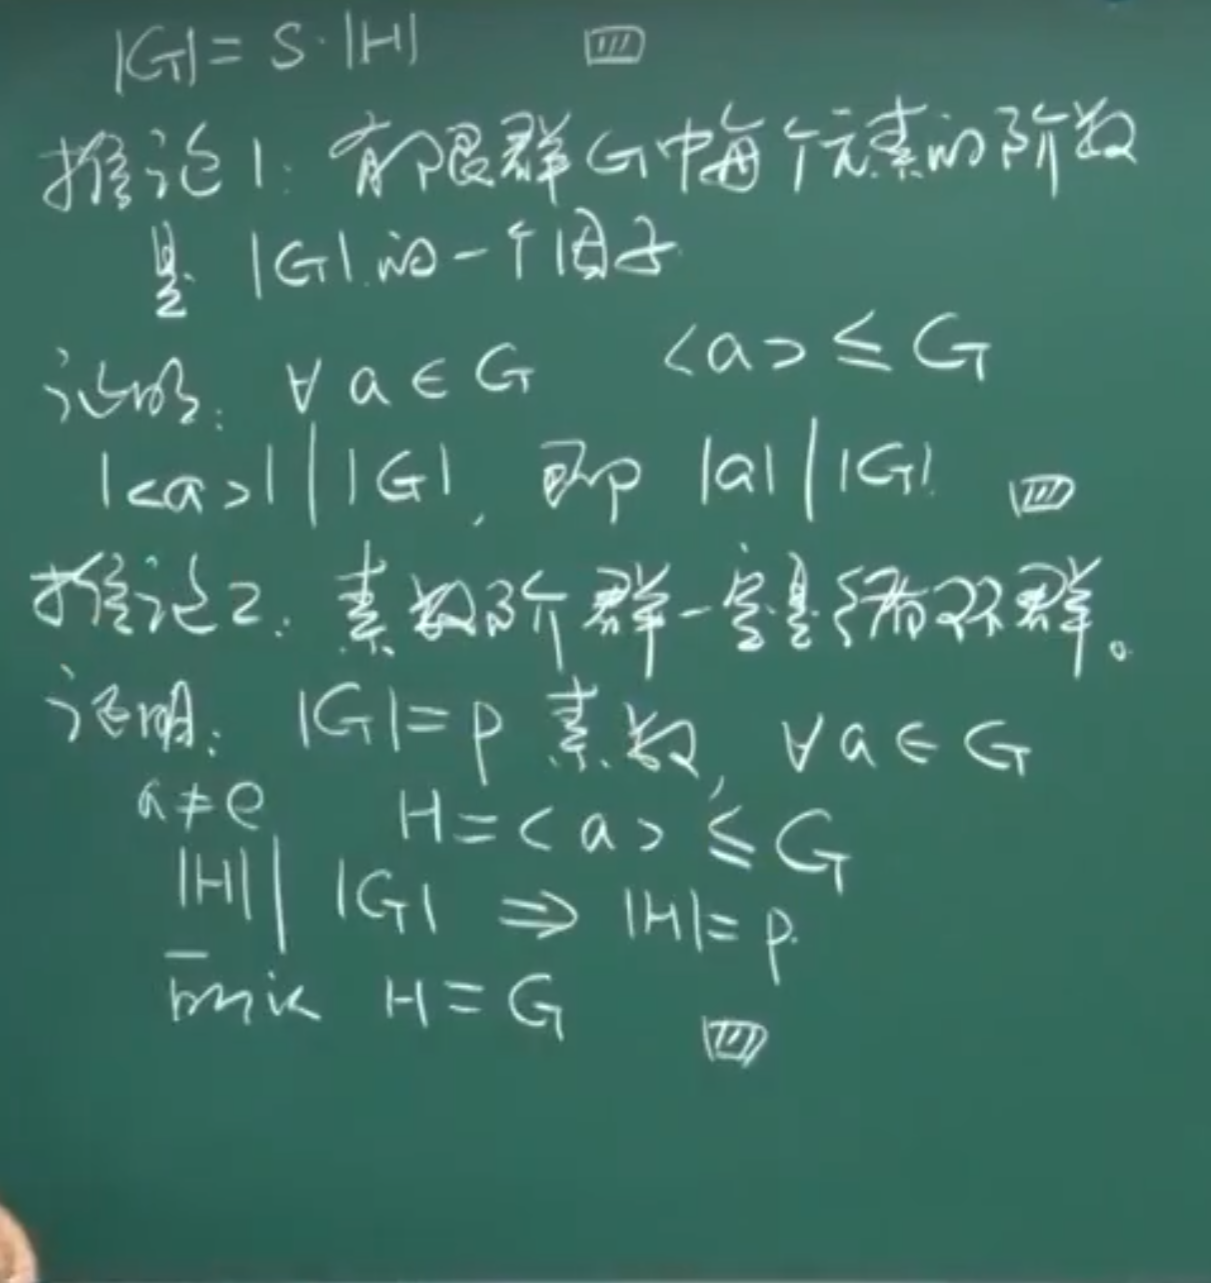 |G| = S·|H|
推论1: 有限群G中每个元素的阶数
是 |G| 的一个因子
证明: ∀ a ∈ G <a> ≤ G
|<a>| | |G|, 即 |a| | |G|.
推论2: 素数阶群一定是循环群。
证明: |G|=p 素数, ∀ a ∈ G
a≠e H=<a> ≤ G
|H| | |G| ⇒ |H|=p.
因此 H=G